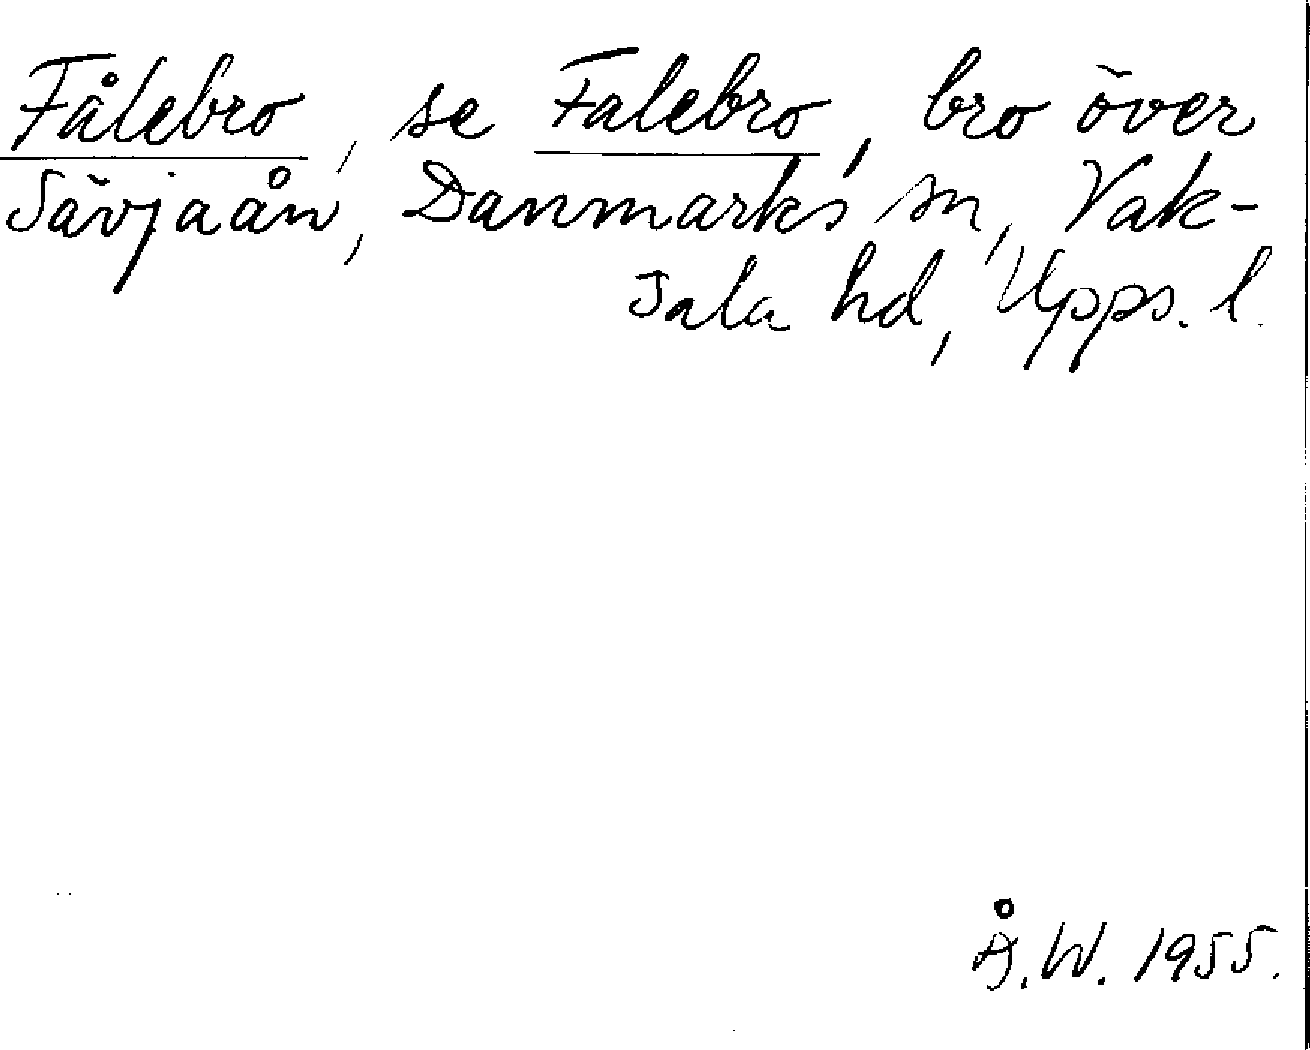 Fålebro, se Falebro, bro över
Sävjaån, Danmarks sn, Vak-
sala hd, Upps. l.
Å.W. 1955.